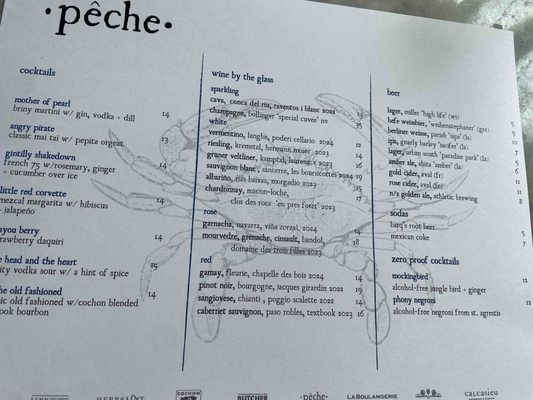 ·pêche·
cocktails
mother of pearl
briny martini w/ gin, vodka + dill 14
angry pirate
classic mai tai w/ pepita orgeat 13
gintilly shakedown
french 75 w/rosemary, ginger 14
+ cucumber over ice
little red corvette
mezcal margarita w/ hibiscus 14
+ jalapeño
ayou berry
rawberry daquiri 14
e head and the heart
ity vodka sour w/ a hint of spice 15
he old fashioned
ic old fashioned w/cochon blended 14
ook bourbon
wine by the glass
sparkling
cava, conca del riu, raventos i blanc 2022 13
champagne, bollinger 'special cuvee' nv 35
white
vermentino, langhe, poderi cellario 2024 12
riesling, kremstal, hermann moser 2023 14
gruner veltliner, kamptal, laurenz v 2023 16
sauvignon blanc, sancerre, les boursicottes 2024 19
albariño, rias baixas, morgadio 2023 15
chardonnay, macon-loche,
clos des rocs 'en pres foret' 2023 17
rose
garnacha, navarra, viña zorzal, 2024 14
mourvedre, grenache, cinsault, bandol, 18
domaine des trois filles 2023
red
gamay, fleurie, chapelle des bois 2024 16
pinot noir, bourgogne, jacques girardin 2022 19
sangiovese, chianti, poggio scalette 2022 14
cabernet sauvignon, paso robles, textbook 2023 16
beer
lager, miller 'high life' (wi) 5
hefe weissbier, 'weihenstephaner' (ger) 9
berliner weisse, parish 'sips' (la) 10
ipa, gnarly barley 'jucifer' (la) 7
lager, urban south 'paradise park' (la) 5
amber ale, abita 'amber' (la) 6
gold cider, aval (fr) 11
rose cider, aval (fr) 11
n/a golden ale, athletic brewing 8
sodas
barq's root beer 5
mexican coke 7
zero proof cocktails
mockingbird 12
alcohol-free jungle bird + ginger
phony negroni 12
alcohol-free negroni from st. agrestis
HERBSAINT COCHON BUTCHER ·pêche· LABOULANGERIE CALCASIEU